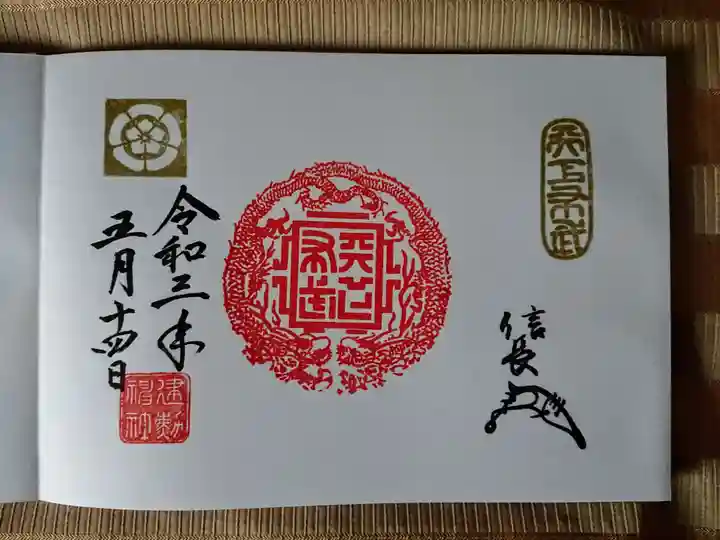 天下布武
信長
天下布武
令和三年
五月十四日
建勲神社